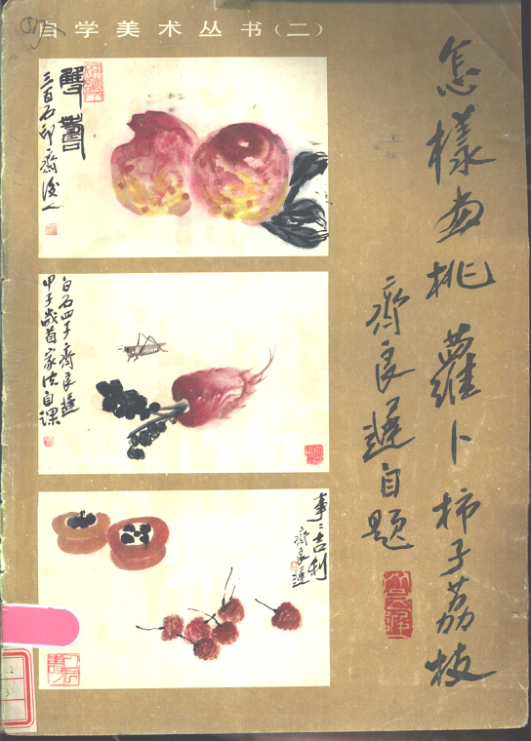 自学美术丛书（二）
怎樣畫桃蘿卜柿子荔枝
齊良遲自題
雙壽
三百石印齋後人
白石四子齊良遲
甲子歲首家法自課
事〻吉利
齊良遲